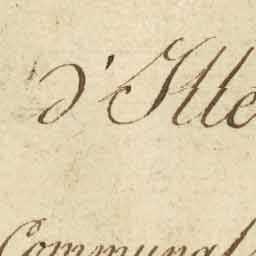 d'Ille
Communal